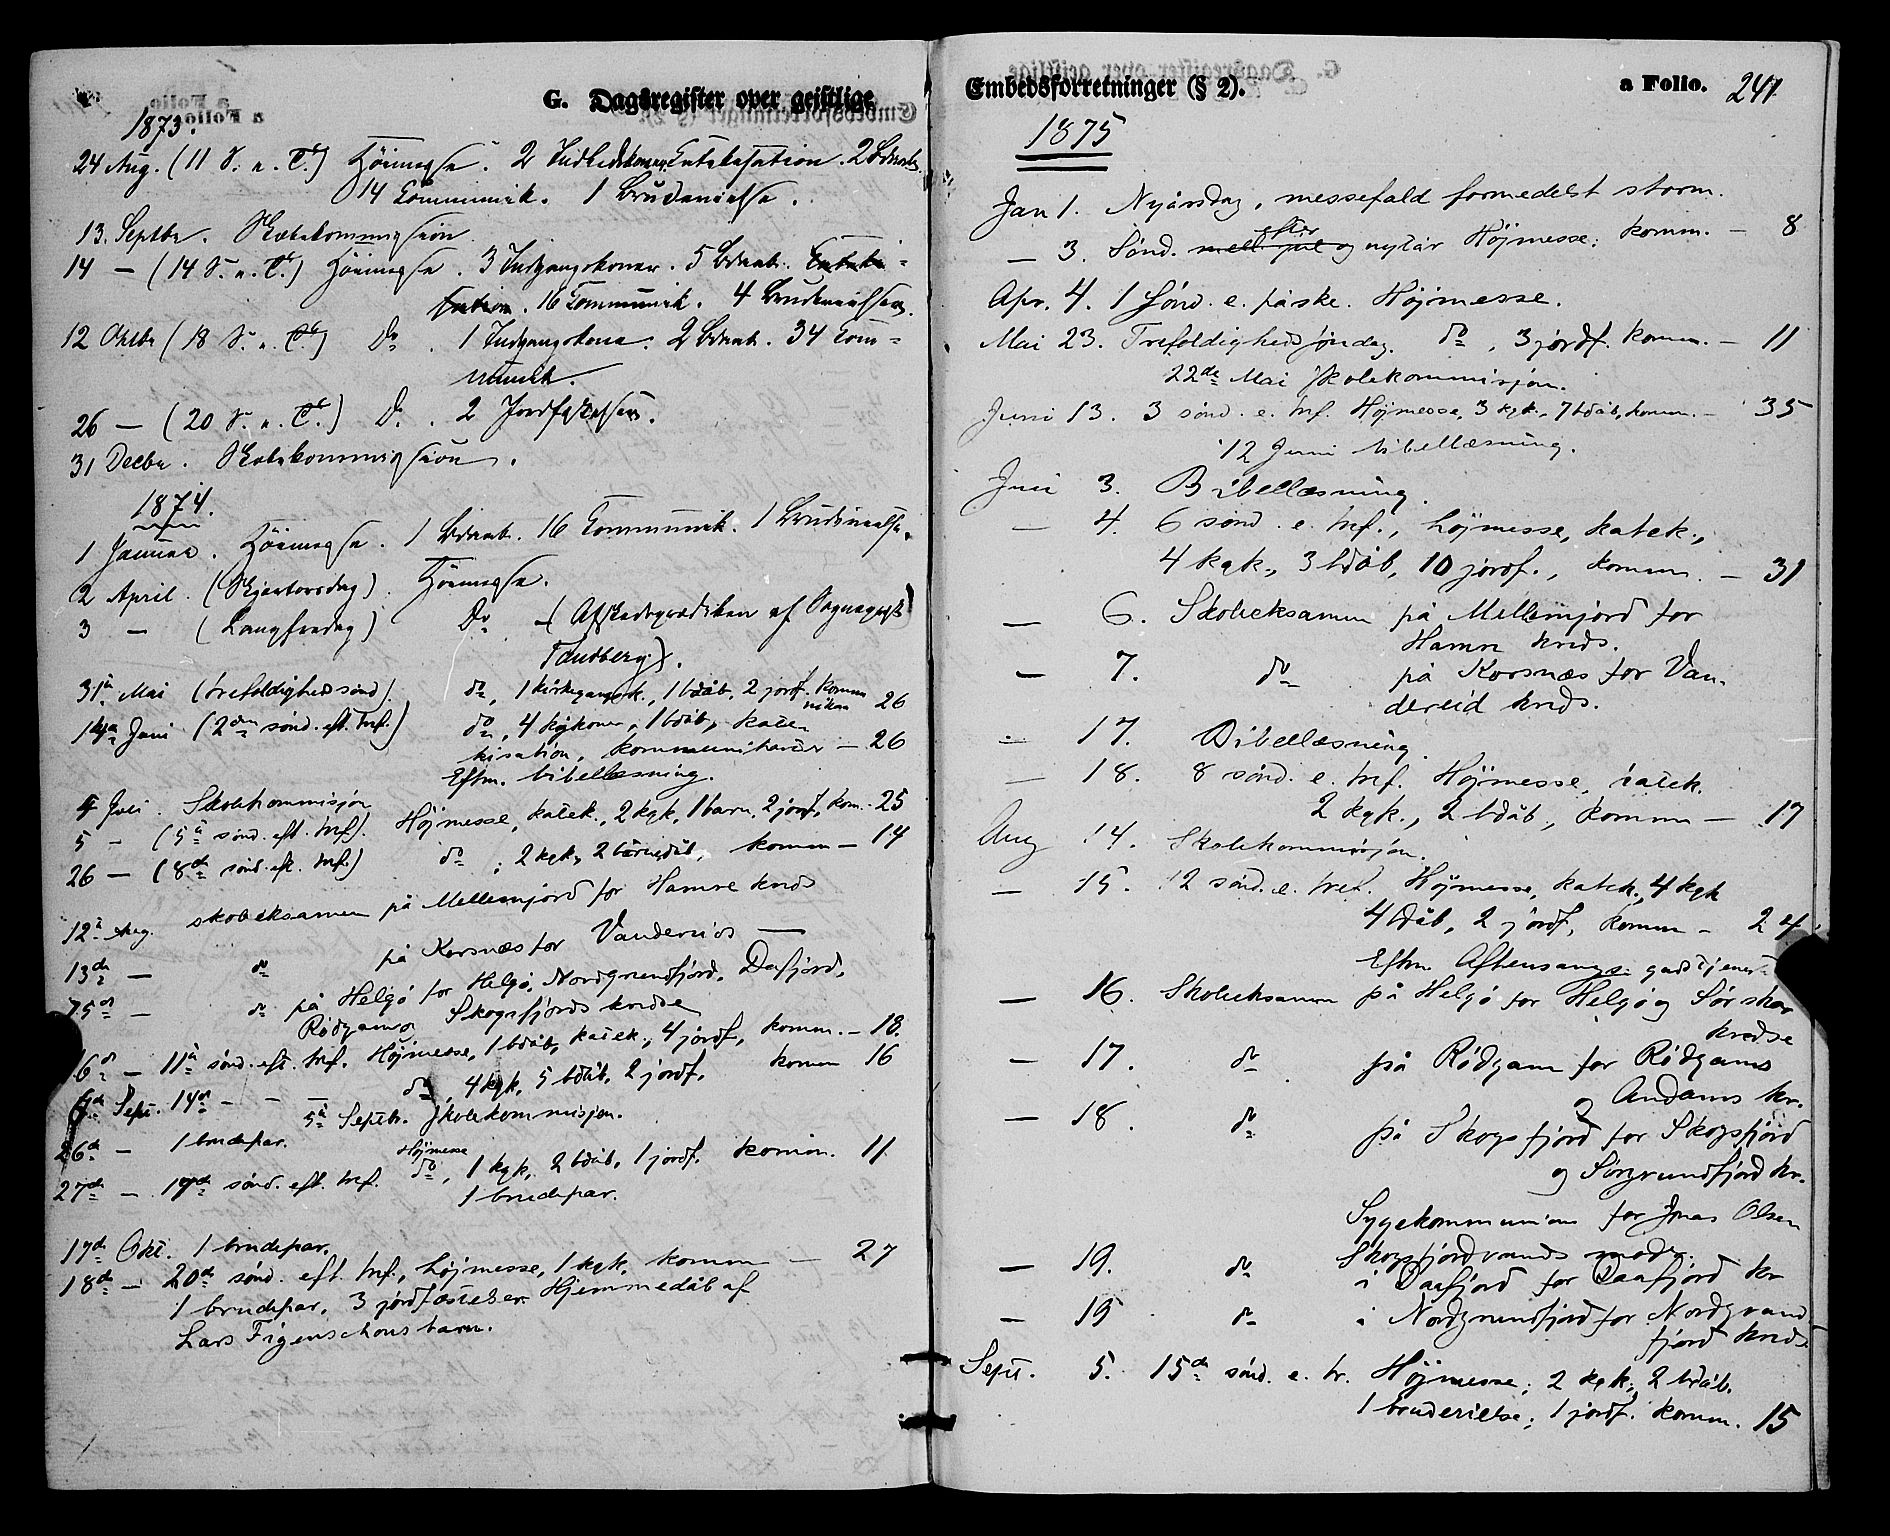 G. Dagsregister over geistlige
1873.
24 Aug. (11 S. e. Tr.) Höimesse. 2 Catekisation.
14 Communik. 1 Brudevielse.
13. Septbr. Skolekommission.
14 — (14 S. e. Tr.) Höimesse. 3 Indgangskoner. 5 Börnedb. Cateki-
sation. 16 Communik. 4 Brudevielser.
12 Oktbr (18 S. e. Tr.) Do. 1 Indgangskone. 2 Börnedb. 34 Com-
munik.
26 — (20 S. e. Tr.) Do. 2 Jordfæstelser.
31 Decbr. Skolekommission.
1874.
1 Januar. Höimesse. 1 Börnedb. 16 Communik. 1 Brudevielse.
2 April. (Skjærtorsdag). Höimesse.
3 — (Langfredag) Do — (Afskedsprædiken af Sognepræst
Tandberg).
31te Mai (trefoldighedssönd). do, 1 kirkegangsk., 1 bdåb, 2 jordf. Komm
nikan 26
14de Juni (2den sönd. eft. tref.) do, 4 kgkoner, 1 bdåb, kate-
kisation, kommunikanter — 26
Eftm. bibellæsning.
4 Juli. Skolekommisjon
5 — (5te sönd. eft. tref). Höjmesse, katek., 2 kgk, 1 barn, 2 jordf, kom. 25
26 — (8de sönd. eft. tref.) do, 2 kgk, 2 barnedåb, komm — 14
12te Aug. skoleeksamen på Mellemjord for Hamre kreds
13de — do på Korsnæs for Vandereids —
15de — do på Helgö for Helgö, Nordgrundfjord, Dafjord,
Rödgams Skogsfjords kredse
16de — 11te sönd. eft. tref. Höjmesse, 1 bdåb, katek., 4 jordf, komm. — 18.
6de Sept. 14de — — — do, 4 kgk, 5 bdåb, 2 jordf, komm 16
5te Septbr. skolekommisjon.
26de — 1 brudepar.
27de — 17de sönd. eft. tref. Höjmesse do, 1 kgk, 2 bdåb, 1 jordf. komm. 11
1 brudepar.
17de Okt. 1 brudepar.
18de — 20de sönd. eft. tref., höjmesse, 1 kgk, komm — 27
1 brudepar, 3 jordfæstelser. Hjemmedåb af
Lars Figenschous barn.
Embedsforretninger (§ 2).
a Folio. 241
1875
Jan 1. Nyårsdag, messefald formedelst storm.
— 3. Sönd. mell. jul og efter nytår Höjmesse; komm. — 8
Apr. 4. 1 sönd. e. påske. Höjmesse.
Mai 23. Trefoldighedssöndag. do, 3 jordf. komm. — 11
22de Mai skolekommisjon.
Juni 13. 3 sönd. e. tref. Höjmesse, 3 kgk., 7 bdåb, komm. — 35
12 Juni bibellæsning.
Juli 3. Bibellæsning.
— 4. 6 sönd. e. tref., höjmesse, katek.,
4 kgk., 3 bdåb, 10 jordf., komm. — 31
— 6. Skoleeksamen på Mellemjord for
Hamre kreds.
— 7. do på Korsnæs for Van-
dereid kreds.
— 17. Bibellæsning
— 18. 8 sönd. e. tref. Höjmesse, katek.
2 kgk., 2 bdåb, komm — 17
Aug 14. Skolekommisjon.
— 15. 12 sönd. e. tref. Höjmesse, katek., 4 kgk
4 bdåb, 2 jordf, komm — 24
Eftm Aftensangs gudstjeneste
— 16. Skoleeksamen på Helgö for Helgö og Sörskar
kredse
— 17. do på Rödgam for Rödgams
og Andams kr.
— 18. do på Skogsfjord for Skogsfjord
og Sörgrundfjord kr.
Sygekommunion for Jonas Olsen
Skogsfjordvands moder.
— 19. do i Daafjord for Daafjord kr
— 19 do i Nordgrundfjord for Nordgrund
fjord kreds
Sept. 5. 15de sönd. e. tr. Höjmesse; 2 kgk; 2 bdåb.
1 brudevielse; 1 jordf. komm. 15